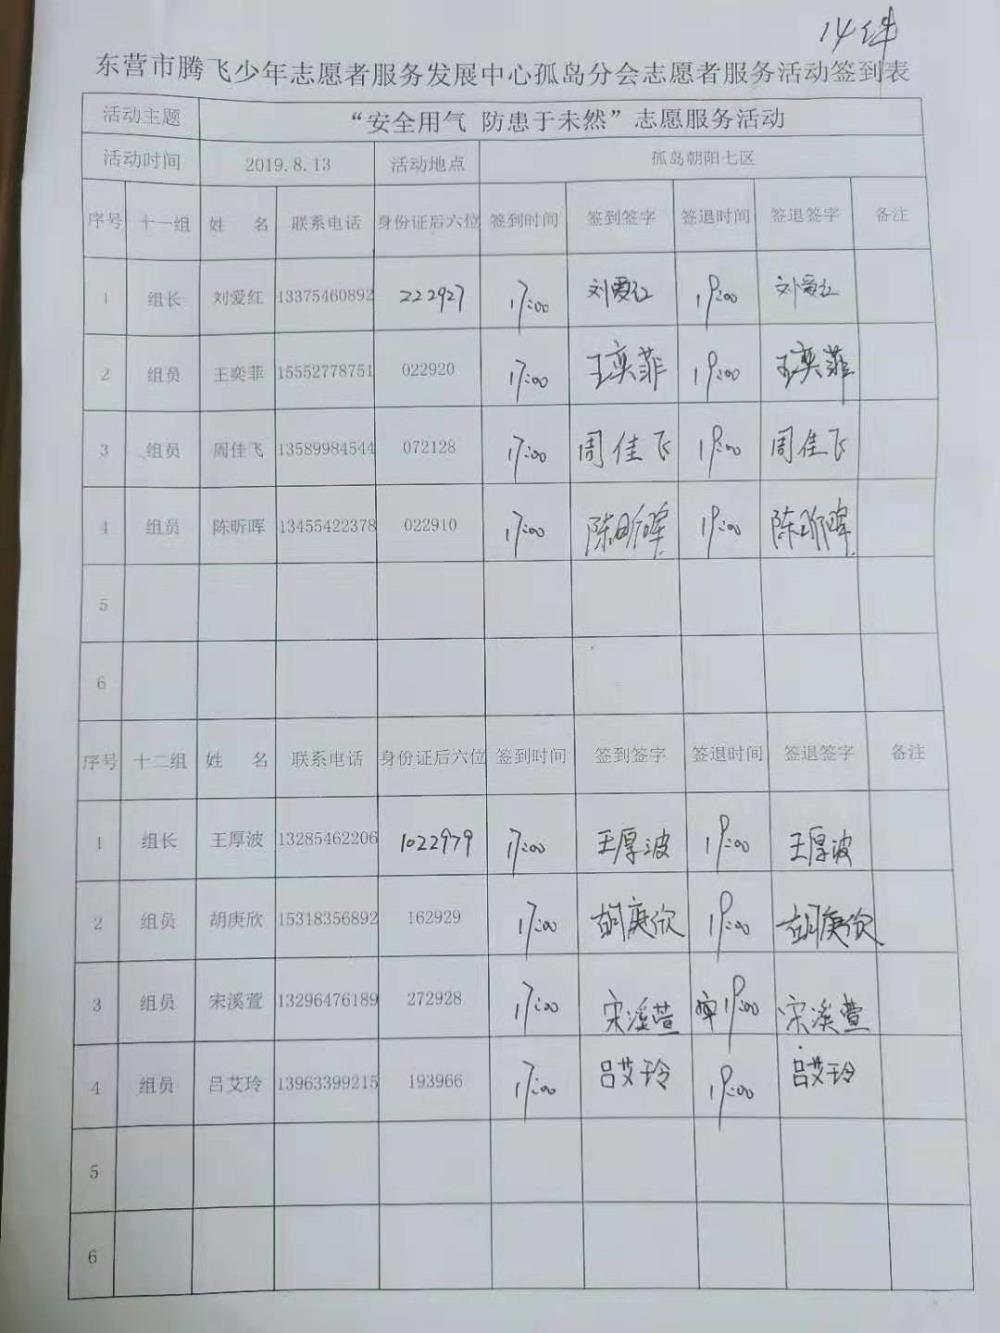 14件
东营市腾飞少年志愿者服务发展中心孤岛分会志愿者服务活动签到表
活动主题 “安全用气 防患于未然”志愿服务活动
活动时间 2019.8.13 活动地点 孤岛朝阳七区
序号 十一组 姓 名 联系电话 身份证后六位 签到时间 签到签字 签退时间 签退签字 备注
1 组长 刘爱红 13375460892 222927 17:00 刘爱红 19:00 刘爱红
2 组员 王奕菲 15552778751 022920 17:00 王奕菲 19:00 王奕菲
3 组员 周佳飞 13589984544 072128 17:00 周佳飞 19:00 周佳飞
4 组员 陈昕晖 13455422378 022910 17:00 陈昕晖 19:00 陈昕晖
5
6
序号 十二组 姓 名 联系电话 身份证后六位 签到时间 签到签字 签退时间 签退签字 备注
1 组长 王厚波 13285462206 1022979 17:00 王厚波 19:00 王厚波
2 组员 胡庚欣 15318356892 162929 17:00 胡庚欣 19:00 胡庚欣
3 组员 宋溪萱 13296476189 272928 17:00 宋溪萱 19:00 宋溪萱
4 组员 吕艾玲 13963399215 193966 17:00 吕艾玲 19:00 吕艾玲
5
6